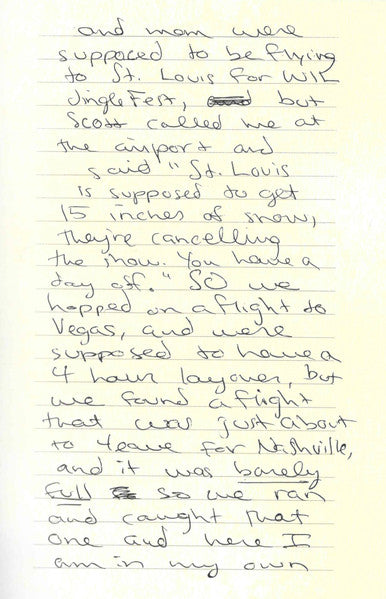 and mom were
supposed to be flying
to St. Louis for WIL
Jingle Fest, but
Scott called me at
the airport and
said "St. Louis
is supposed to get
15 inches of snow,
they're cancelling
the show. You have a
day off." SO we
hopped on a flight to
Vegas, and were
supposed to have a
4 hour layover, but
we found a flight
that was just about
to leave for Nashville,
and it was barely
full so we ran
and caught that
one and here I
am in my own